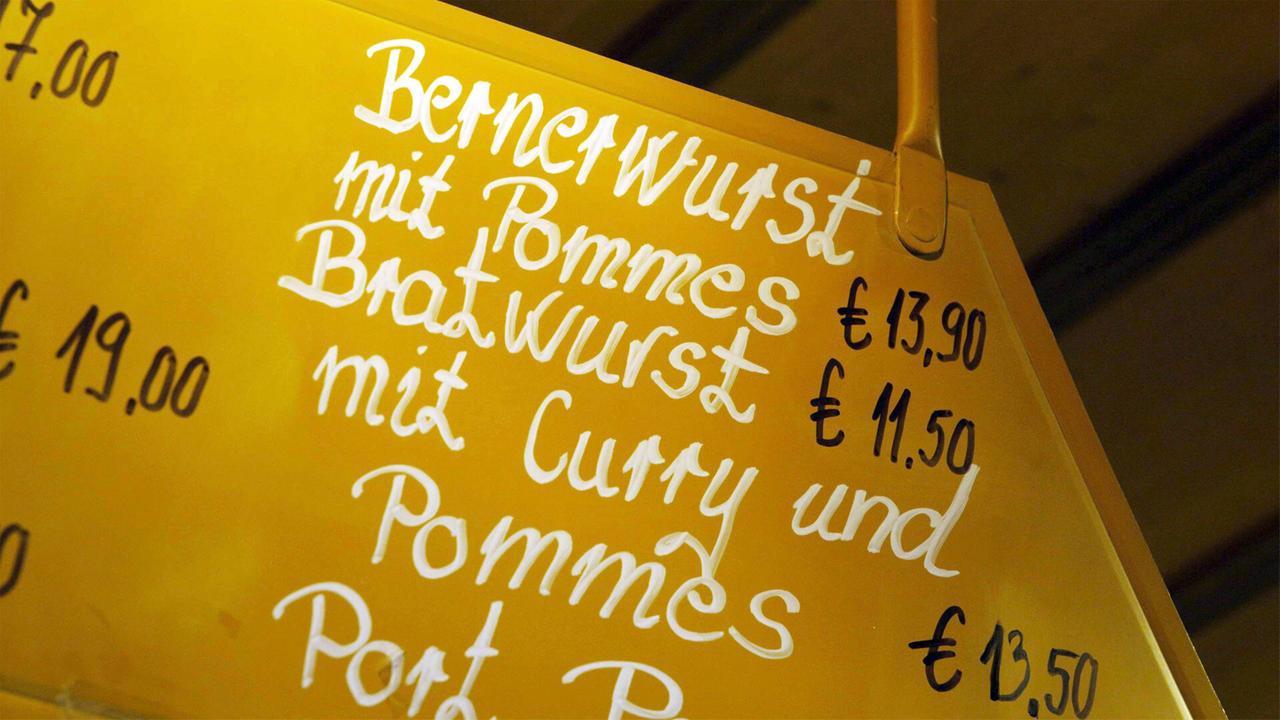 7,00
Bernerwurst
mit Pommes € 13,90
Bratwurst € 11.50
mit Curry und
Pommes € 13,50
Port. P
€ 19,00
0